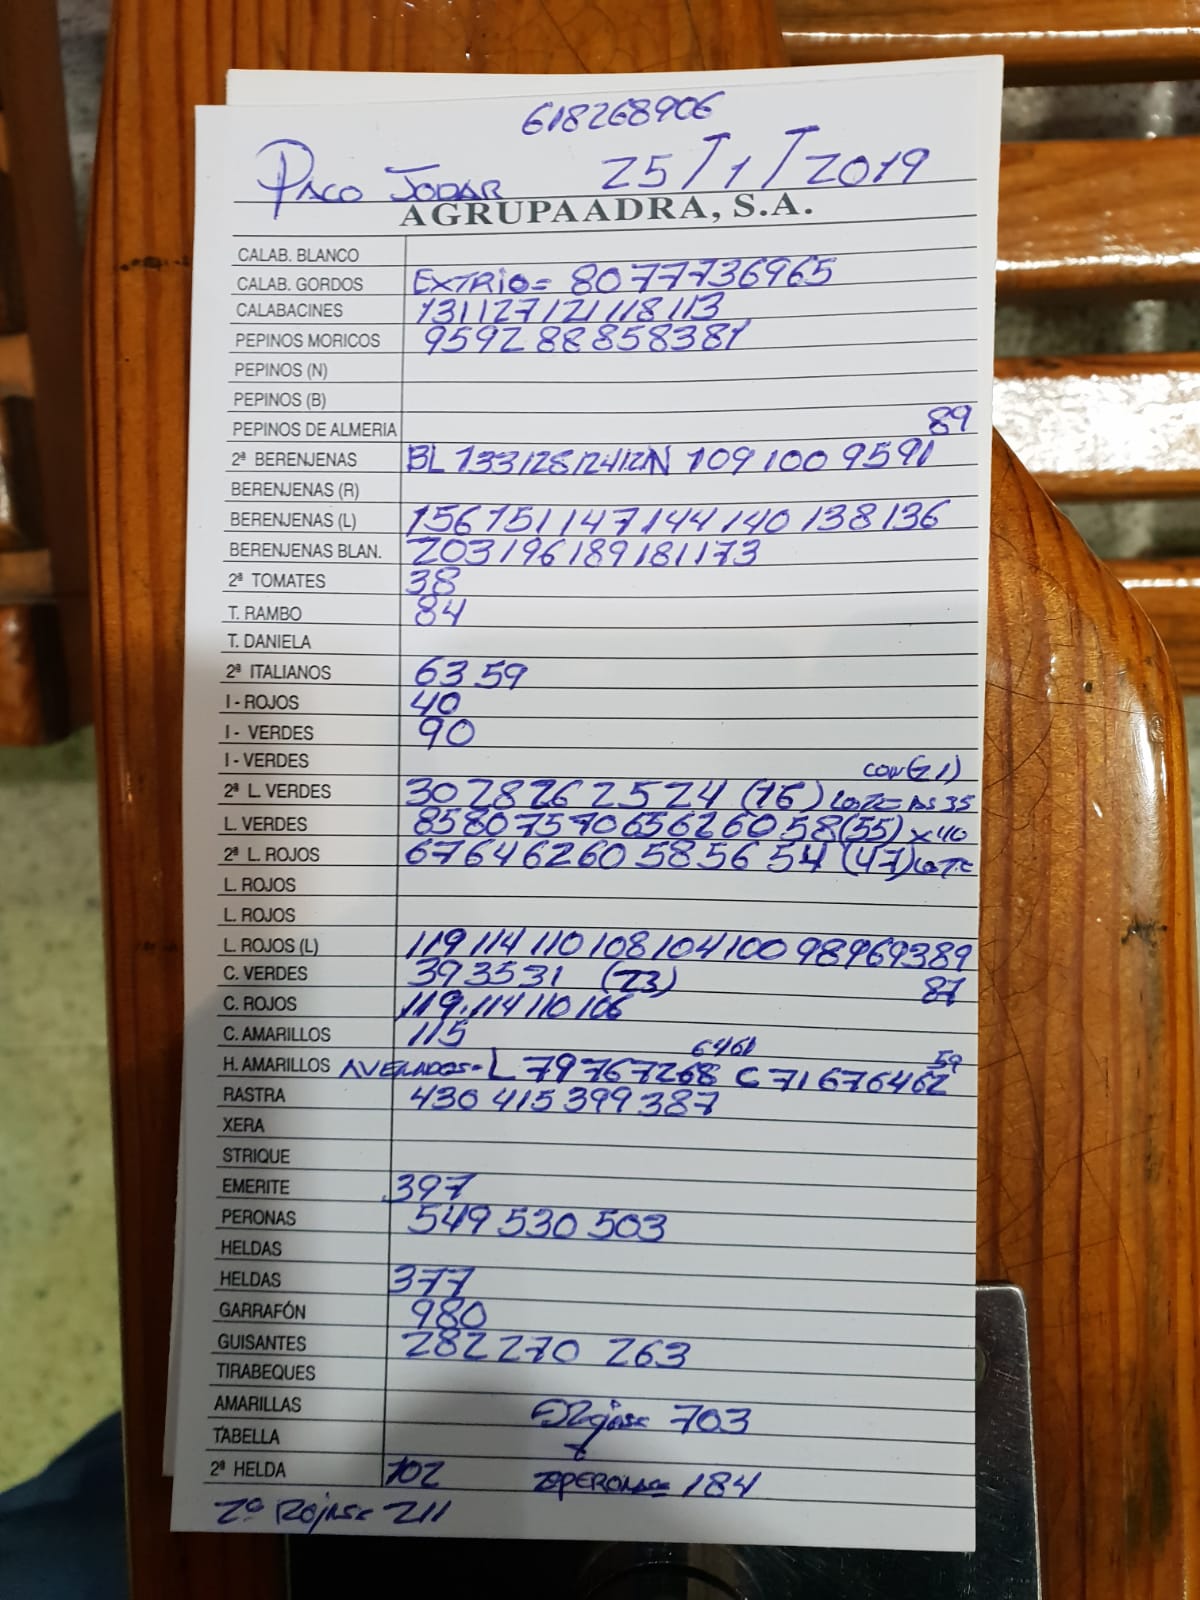 618268906
PACO JODAR 25/1/2019
AGRUPAADRA, S.A.
CALAB. BLANCO
CALAB. GORDOS EXTRIO= 8077736965
CALABACINES 131127121118113
PEPINOS MORICOS 9592 88858381
PEPINOS (N)
PEPINOS (B)
PEPINOS DE ALMERIA 89
2ª BERENJENAS BL 133/28/24/12N 109 100 9591
BERENJENAS (R)
BERENJENAS (L) 156 151 147 144 140 138 136
BERENJENAS BLAN. 203196189181173
2ª TOMATES 38
T. RAMBO 84
T. DANIELA
2ª ITALIANOS 63 59
I - ROJOS 40
I - VERDES 90
I - VERDES
2ª L. VERDES 30 28 26 25 24 (16) LOTE= AS 35
L. VERDES 8580757065626058(55) x 40
2ª L. ROJOS 67646260 585654 (47) LOTE
L. ROJOS
L. ROJOS
L. ROJOS (L) 119 114 110 108 104 100 98969389
C. VERDES 393531 (23) 87
C. ROJOS 119.114 110 106
C. AMARILLOS 115
6461 59
H. AMARILLOS AVELADOS= L 79767268 C 71676462
RASTRA 430 415 399 387
XERA
STRIQUE
EMERITE 397
PERONAS 549 530 503
HELDAS
HELDAS 377
GARRAFÓN 980
GUISANTES 282 270 263
TIRABEQUES
AMARILLAS 703
TABELLA
2ª HELDA 102 2ªPERONA= 184
2ª ROJAS= 211